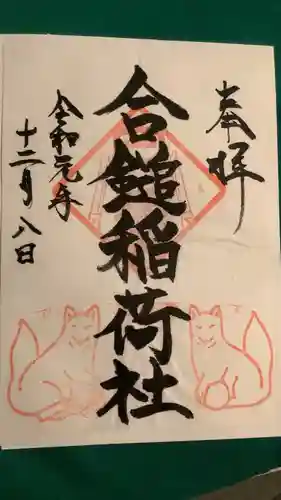 奉拝
合鎚稲荷社
令和元年
十二月八日